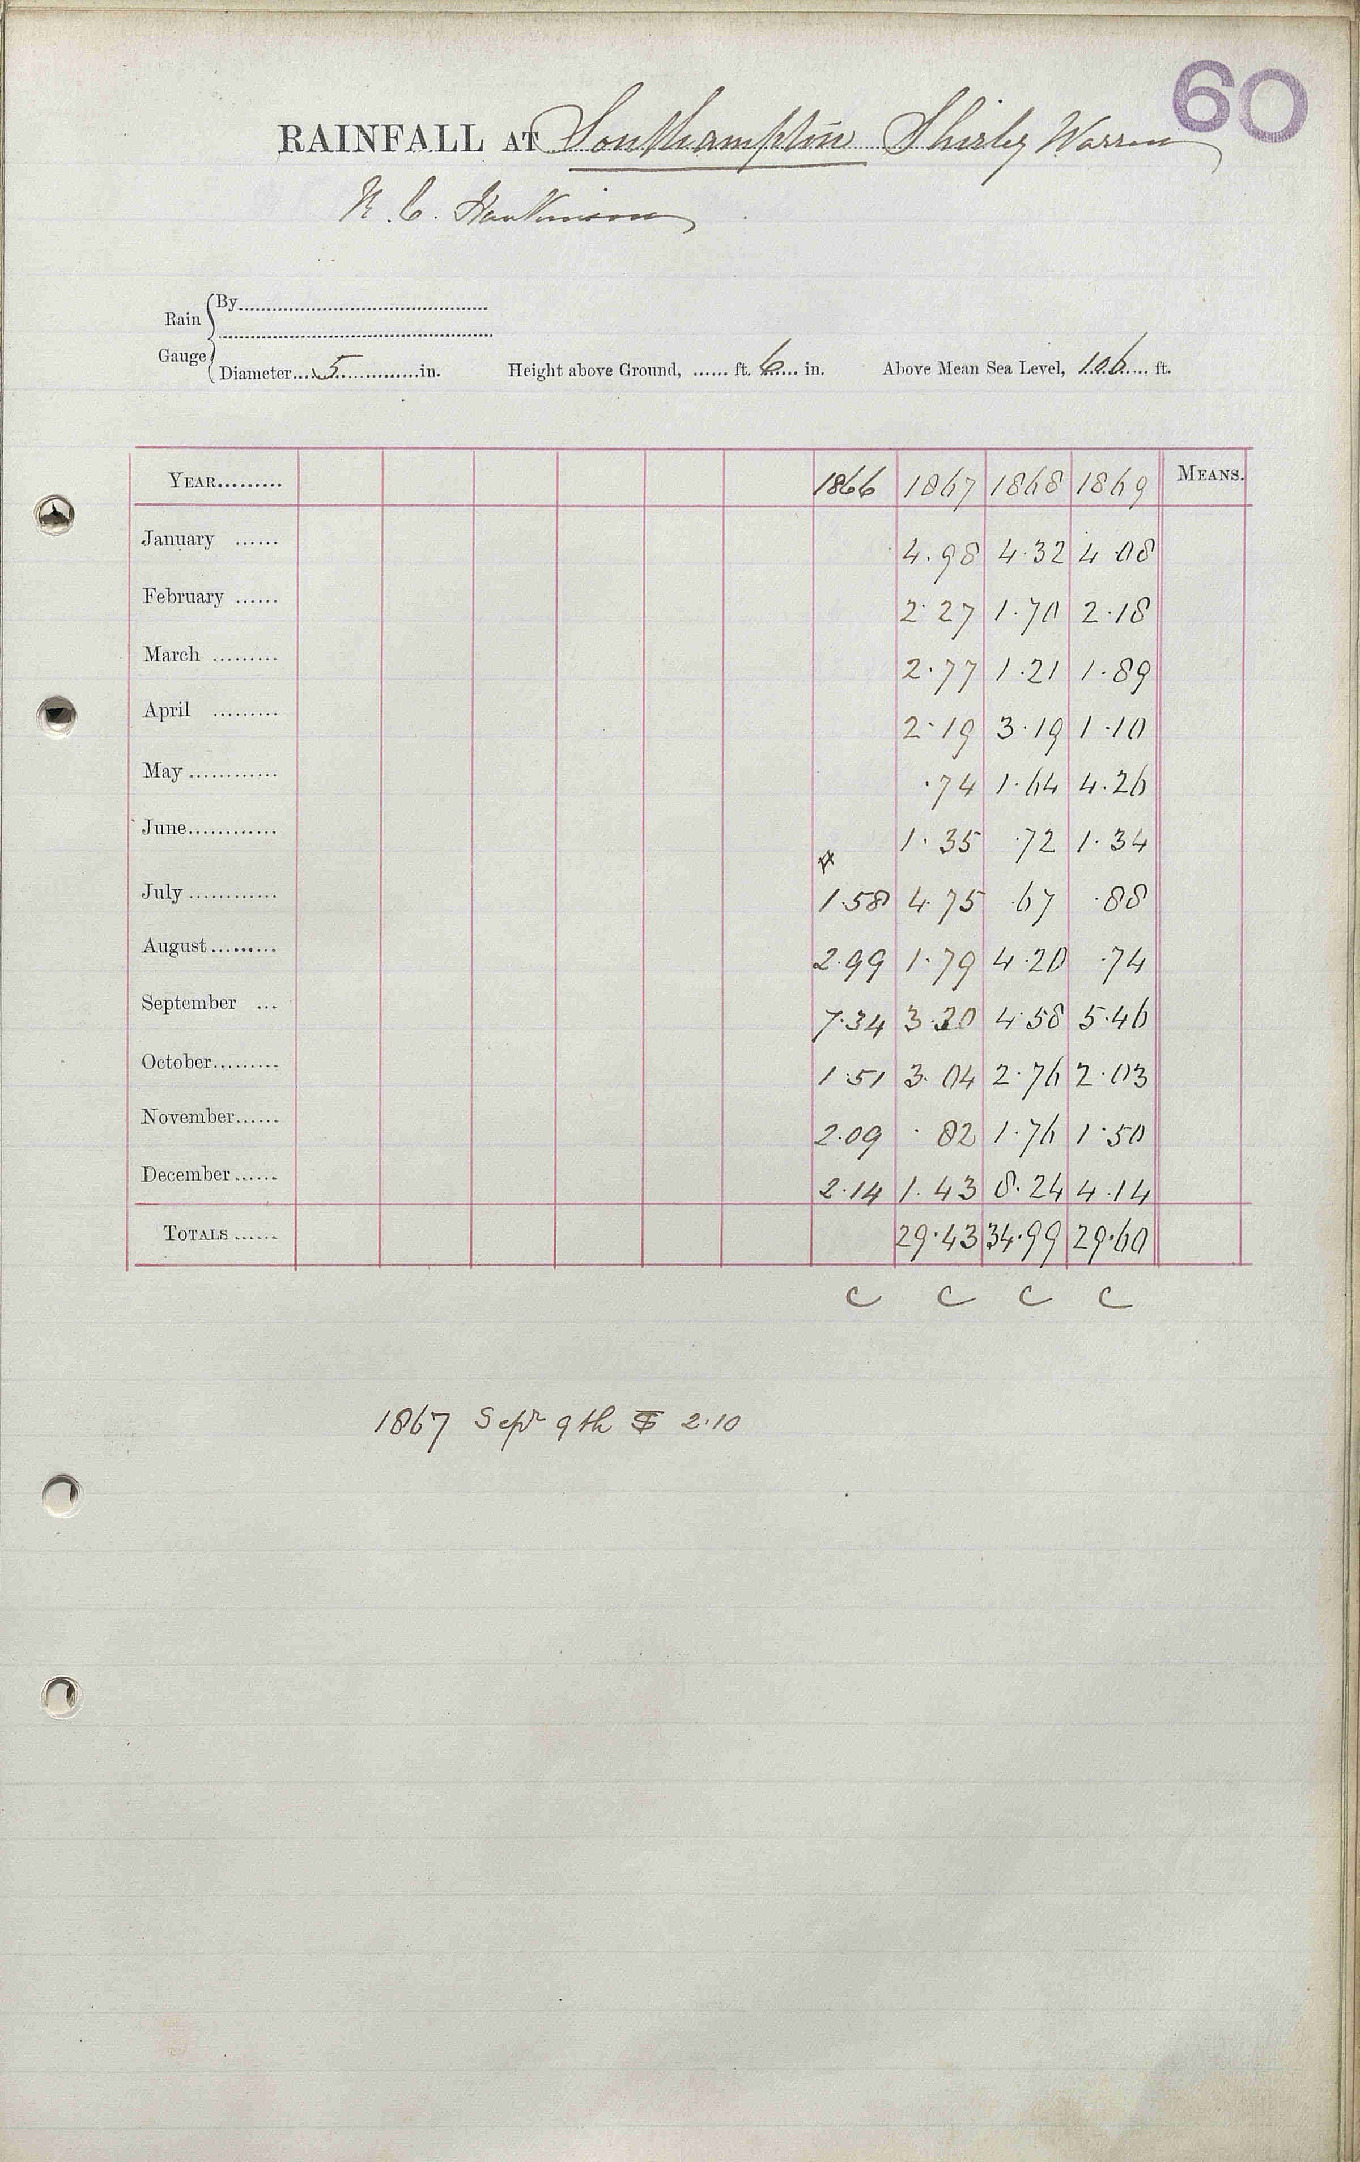 60
RAINFALL AT Southampton Shirley Warren
Rain Gauge
By
Diameter 5 in. Height above Ground, ft. 6 in. Above Mean Sea Level, 106 ft.
YEAR 1866 1867 1868 1869 MEANS.
January 4.98 4.32 4.08
February 2.27 1.70 2.18
March 2.77 1.21 1.89
April 2.19 3.19 1.10
May .74 1.64 4.26
June 1.35 .72 1.34
July 1.58 4.75 .67 .88
August 2.99 1.79 4.20 .74
September 7.34 3.30 4.58 5.46
October 1.51 3.04 2.76 2.03
November 2.09 .82 1.76 1.50
December 2.14 1.43 8.24 4.14
TOTALS 29.43 34.99 29.60
C C C C
1867 Sepr 9th 2.10